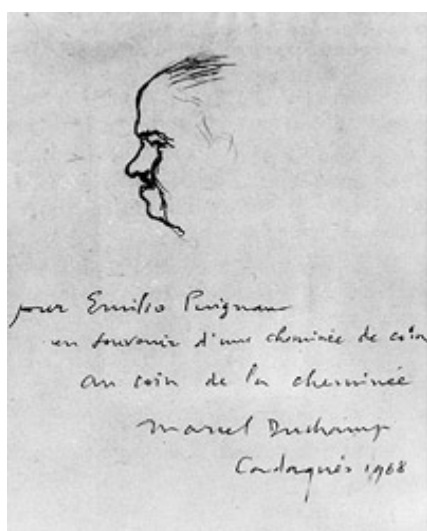 pour Emilio Puignau
en souvenir d'une cheminée de coin
au coin de la cheminée
Marcel Duchamp
Cadaqués 1968